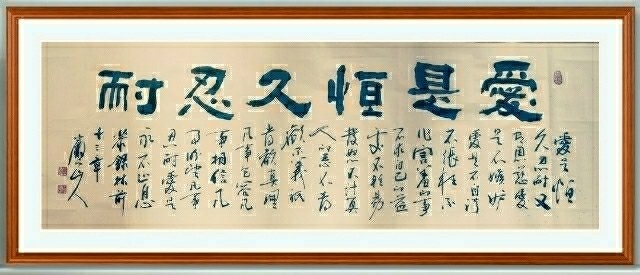 愛是恒久忍耐
愛是恒
久忍耐又
有恩慈愛
是不嫉妒
愛是不自誇
不張狂不
作害羞的事
不求自己的益
處不輕易
發怒不計算
人的惡不喜
歡不義祇
喜歡真理
凡事包容凡
事相信凡
事盼望凡事
忍耐愛是
永不止息
林前
十三章
山人